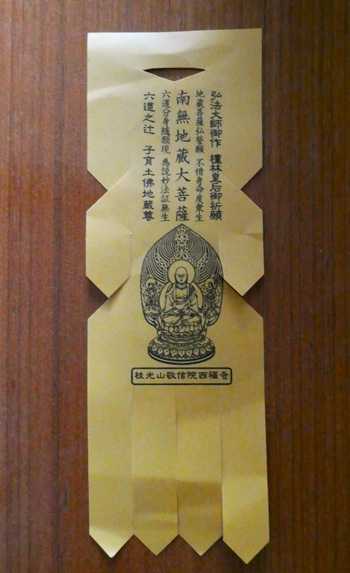 弘法大師御作 檀林皇后御祈願
地蔵菩薩弘誓願 不惜身命度衆生
南無地蔵大菩薩
六道分身随願現 為説妙法証無生
六道之辻 子育土佛地蔵尊
桂光山敬信院西福寺